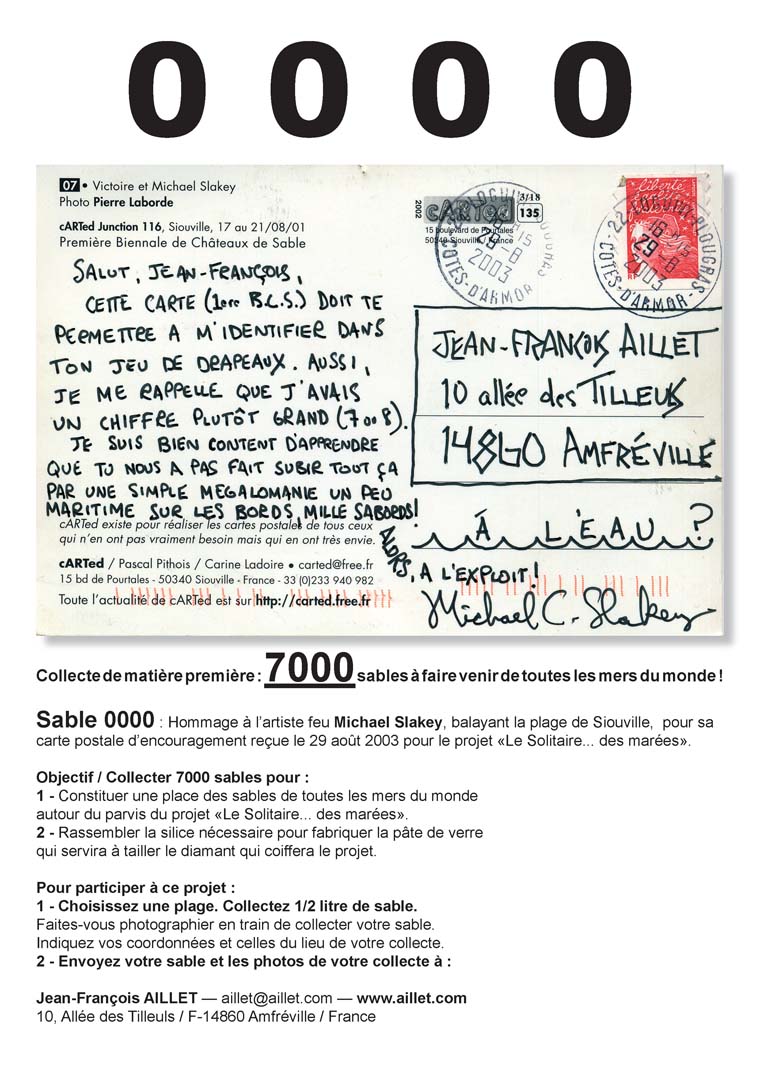 0 0 0 0
07 • Victoire et Michael Slakey
Photo Pierre Laborde
cARTed Junction 116, Siouville, 17 au 21/08/01
Première Biennale de Châteaux de Sable
2002
cARTed
3/18
135
15 boulevard de Pourtales
50340 Siouville / France
18 H 15
29 - 8
2003
CÔTES-D'ARMOR
liberté
22 - LOGUIVY-PLOUGRAS
18 H 15
29 - 8
2003
CÔTES-D'ARMOR
SALUT, JEAN-FRANÇOIS,
CETTE CARTE (1ere B.C.S.) DOIT TE
PERMETTRE A M'IDENTIFIER DANS
TON JEU DE DRAPEAUX. AUSSI,
JE ME RAPPELLE QUE J'AVAIS
UN CHIFFRE PLUTÔT GRAND (7 OU 8).
JE SUIS BIEN CONTENT D'APPRENDRE
QUE TU NOUS A PAS FAIT SUBIR TOUT ÇA
PAR UNE SIMPLE MEGALOMANIE UN PEU
MARITIME SUR LES BORDS, MILLE SABORDS!
JEAN-FRANÇOIS AILLET
10 allée des TILLEULS
14860 AMFRÉVILLE
Á L'EAU ?
ALORS, A L'EXPLOIT!
Michael C. Slakey
cARTed existe pour réaliser les cartes postales de tous ceux
qui n'en ont pas vraiment besoin mais qui en ont très envie.
cARTed / Pascal Pithois / Carine Ladoire • carted@free.fr
15 bd de Pourtales - 50340 Siouville - France - 33 (0)233 940 982
Toute l'actualité de cARTed est sur http://carted.free.fr
Collecte de matière première : 7000 sables à faire venir de toutes les mers du monde !
Sable 0000 : Hommage à l'artiste feu Michael Slakey, balayant la plage de Siouville, pour sa
carte postale d'encouragement reçue le 29 août 2003 pour le projet «Le Solitaire... des marées».
Objectif / Collecter 7000 sables pour :
1 - Constituer une place des sables de toutes les mers du monde
autour du parvis du projet «Le Solitaire... des marées».
2 - Rassembler la silice nécessaire pour fabriquer la pâte de verre
qui servira à tailler le diamant qui coiffera le projet.
Pour participer à ce projet :
1 - Choisissez une plage. Collectez 1/2 litre de sable.
Faites-vous photographier en train de collecter votre sable.
Indiquez vos coordonnées et celles du lieu de votre collecte.
2 - Envoyez votre sable et les photos de votre collecte à :
Jean-François AILLET — aillet@aillet.com — www.aillet.com
10, Allée des Tilleuls / F-14860 Amfréville / France